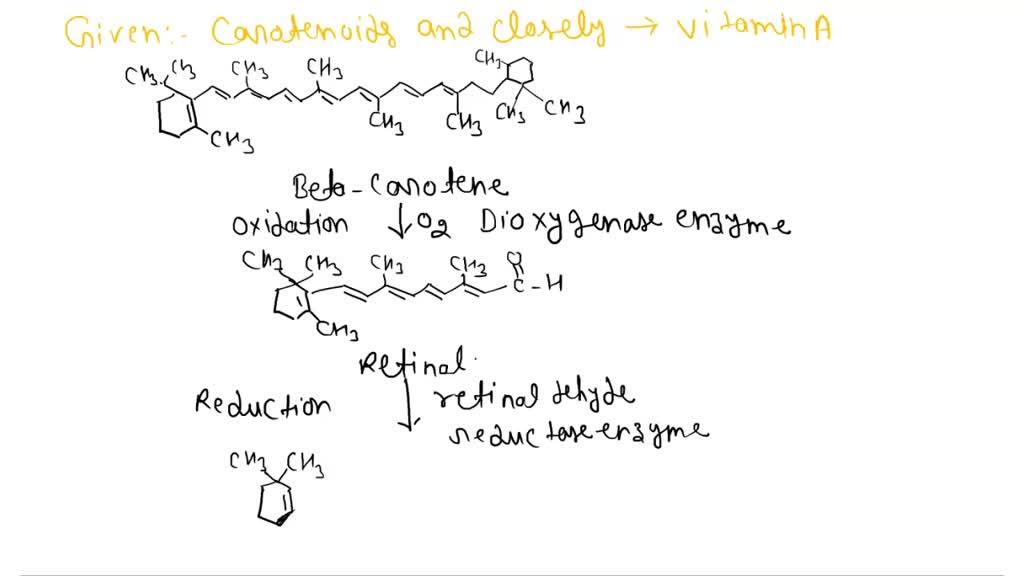 Given:- Carotenoids and closely → vitamin A
CH3 CH3 CH3 CH3 CH3
CH3 CH3 CH3 CH3 CH3
Beta-Carotene
Oxidation ↓ O2 Dioxygenase enzyme
CH3 CH3 CH3 CH3 O
C-H
CH3
Retinal.
Reduction ↓ retinal dehyde
reductase enzyme
CH3 CH3